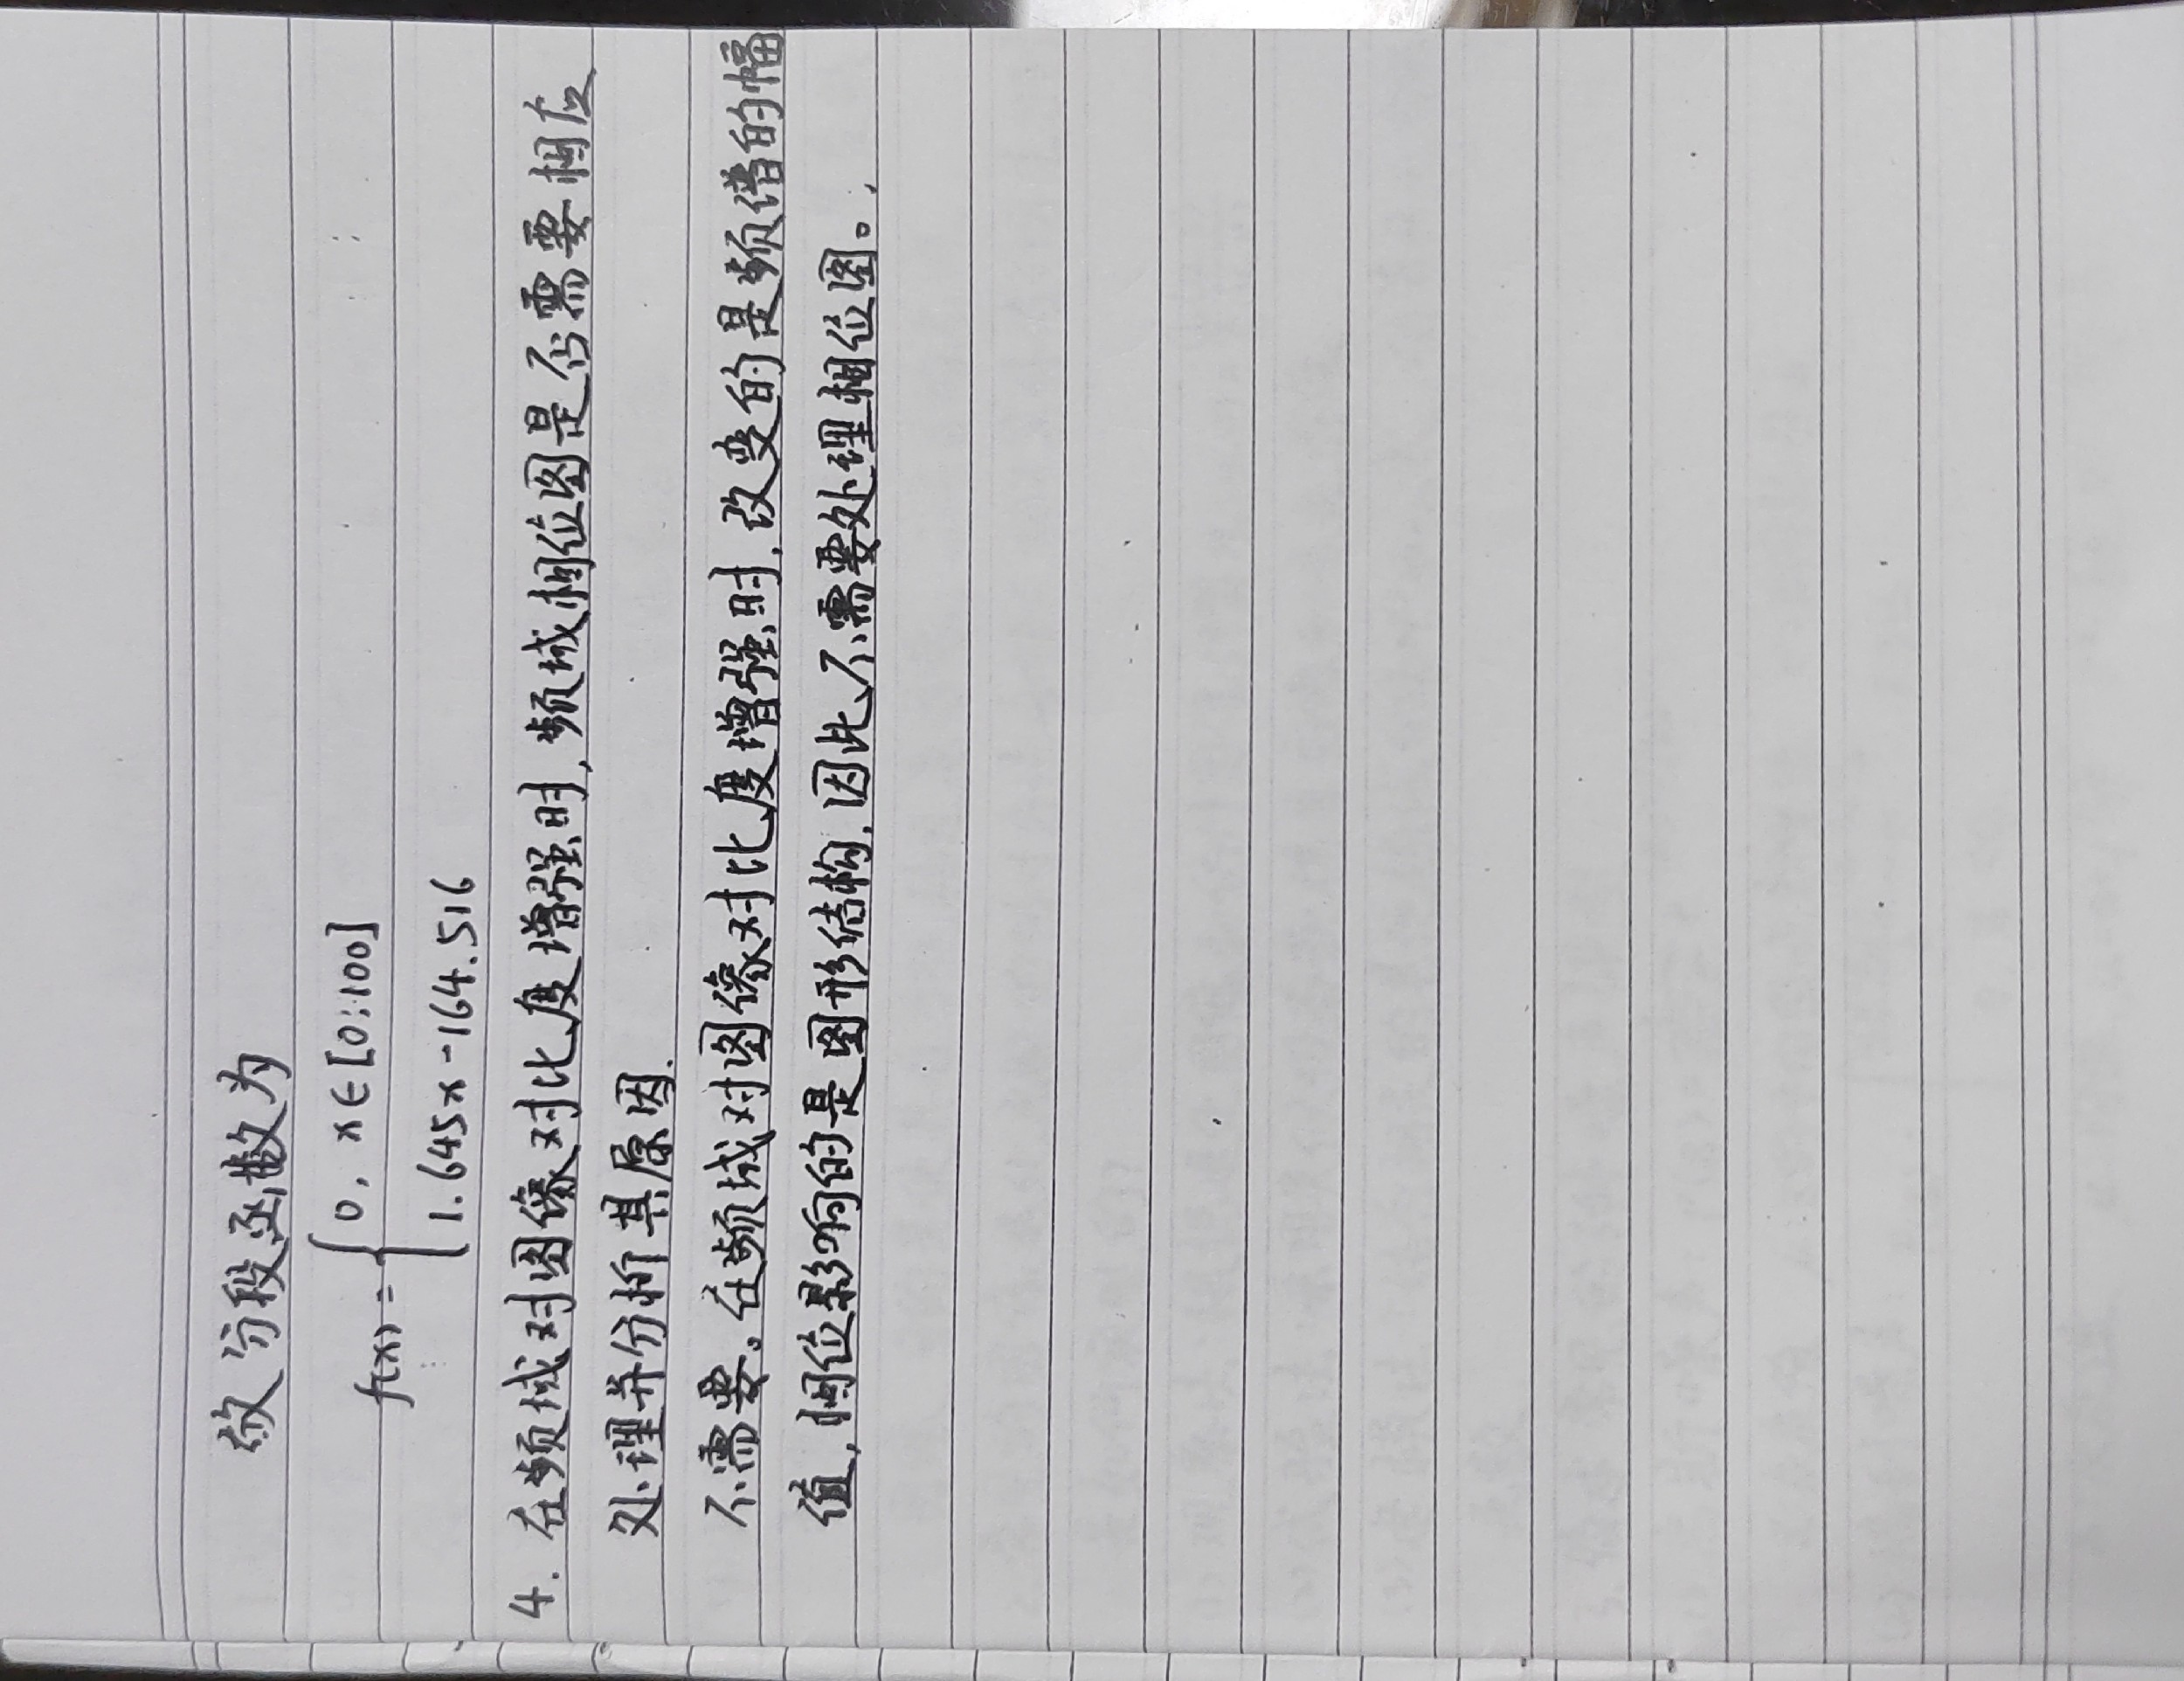 故分段函数为
f(x) = { 0, x∈[0:100]
1.645x-164.516
4. 在频域对图像对比度增强时,频域相位图是否需要相应
处理并分析其原因.
不需要。在频域对图像对比度增强时,改变的是频谱的幅
值,相位影响的是图形结构,因此不需要处理相位图。